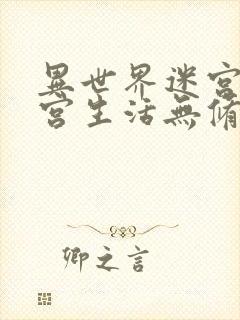 異世界迷宮
宮生活無脩
卿之言